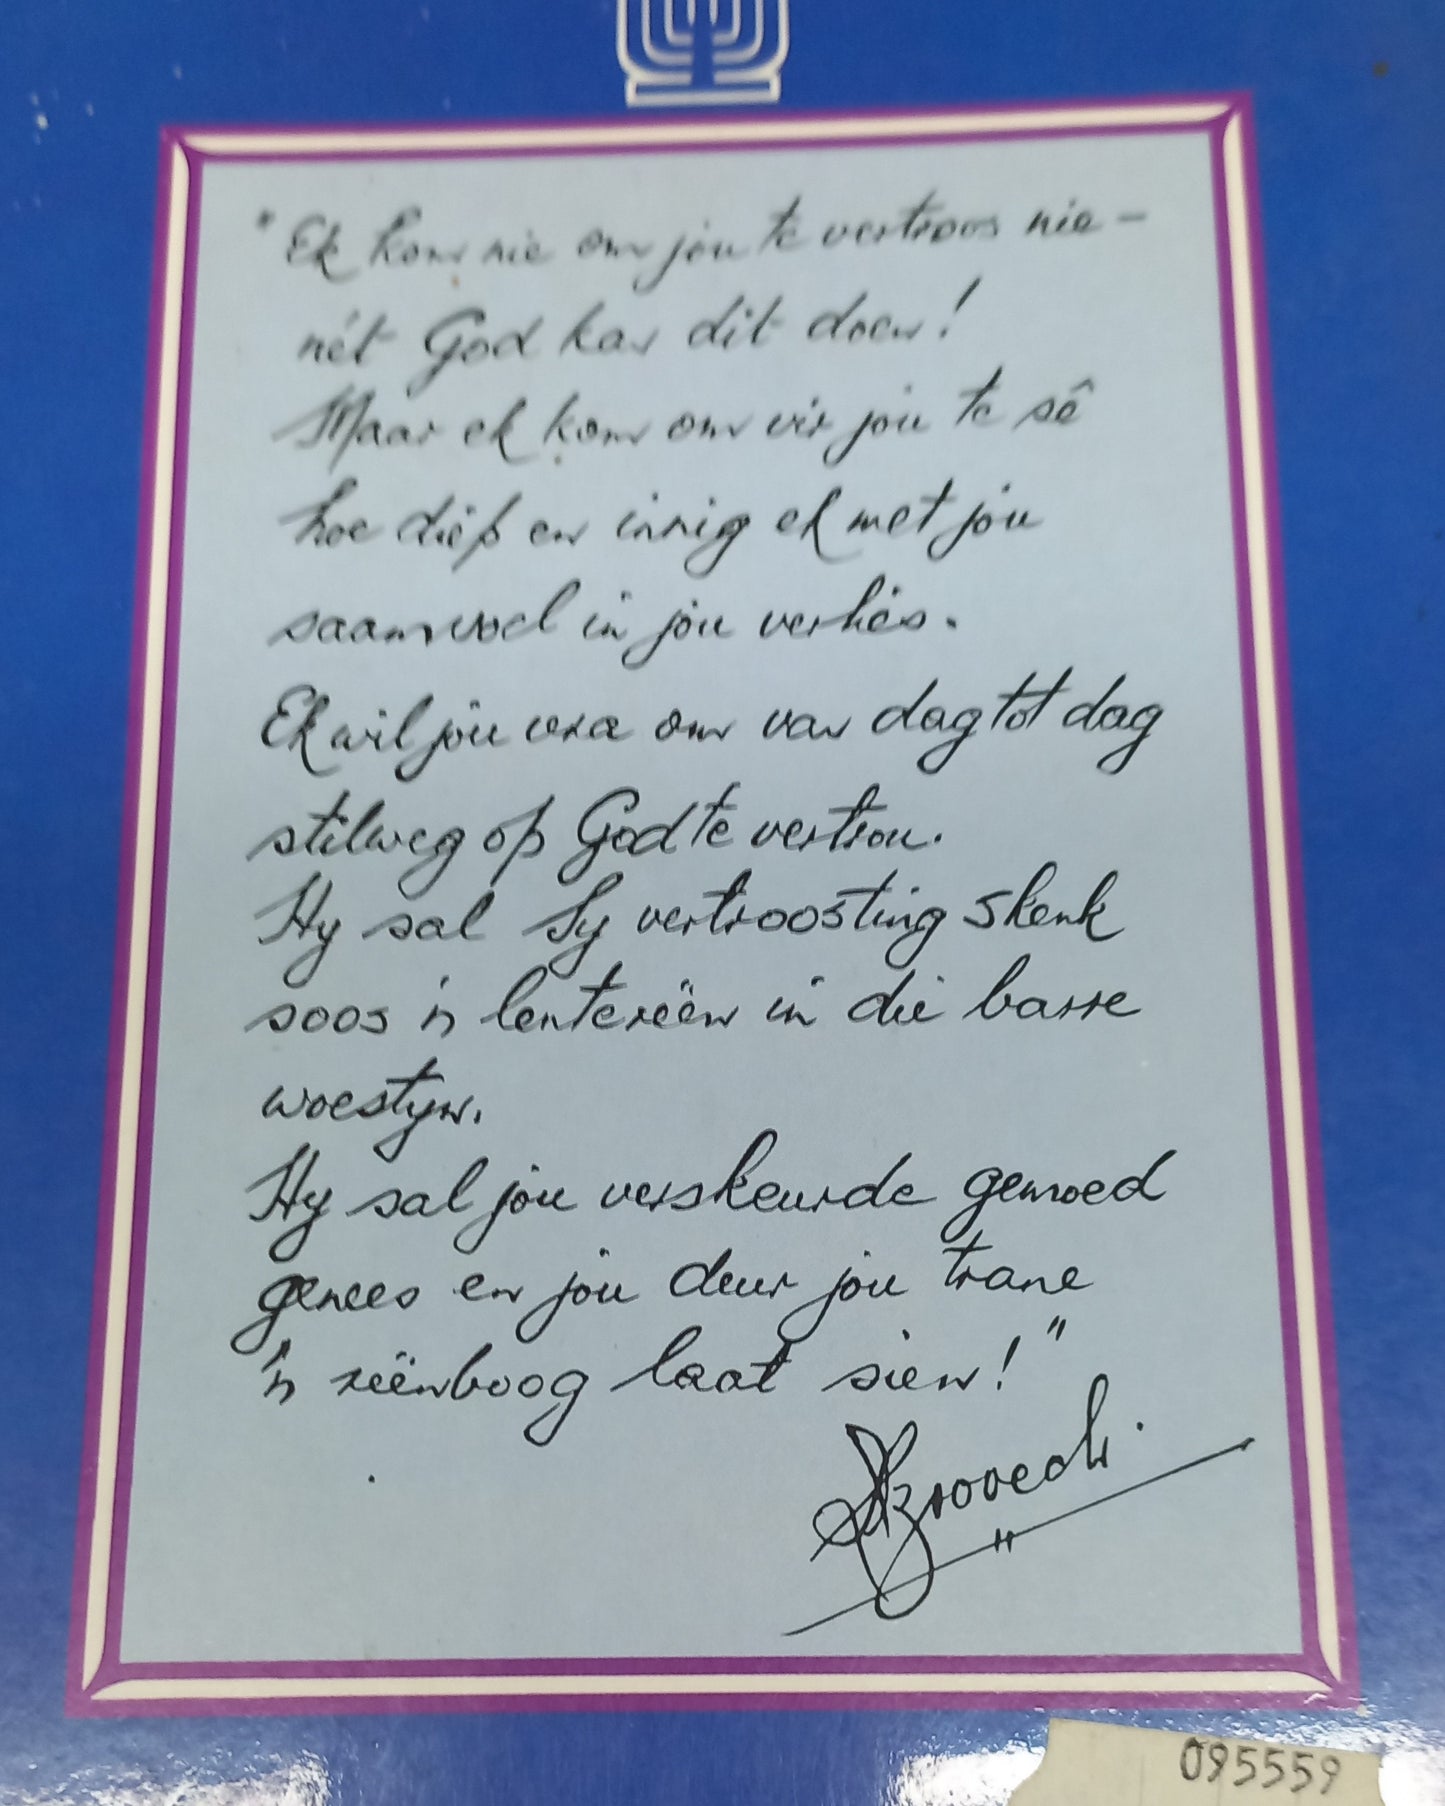 "Ek kom nie om jou te vertroos nie -
nét God kan dit doen!
Maar ek kom om vir jou te sê
hoe diep en innig ek met jou
saamvoel in jou verlies.
Ek wil jou vra om van dag tot dag
stilweg op God te vertrou.
Hy sal Sy vertroosting skenk
soos 'n lentereën in die barre
woestyn.
Hy sal jou verskeurde gemoed
genees en jou deur jou trane
'n reënboog laat sien!"
095559